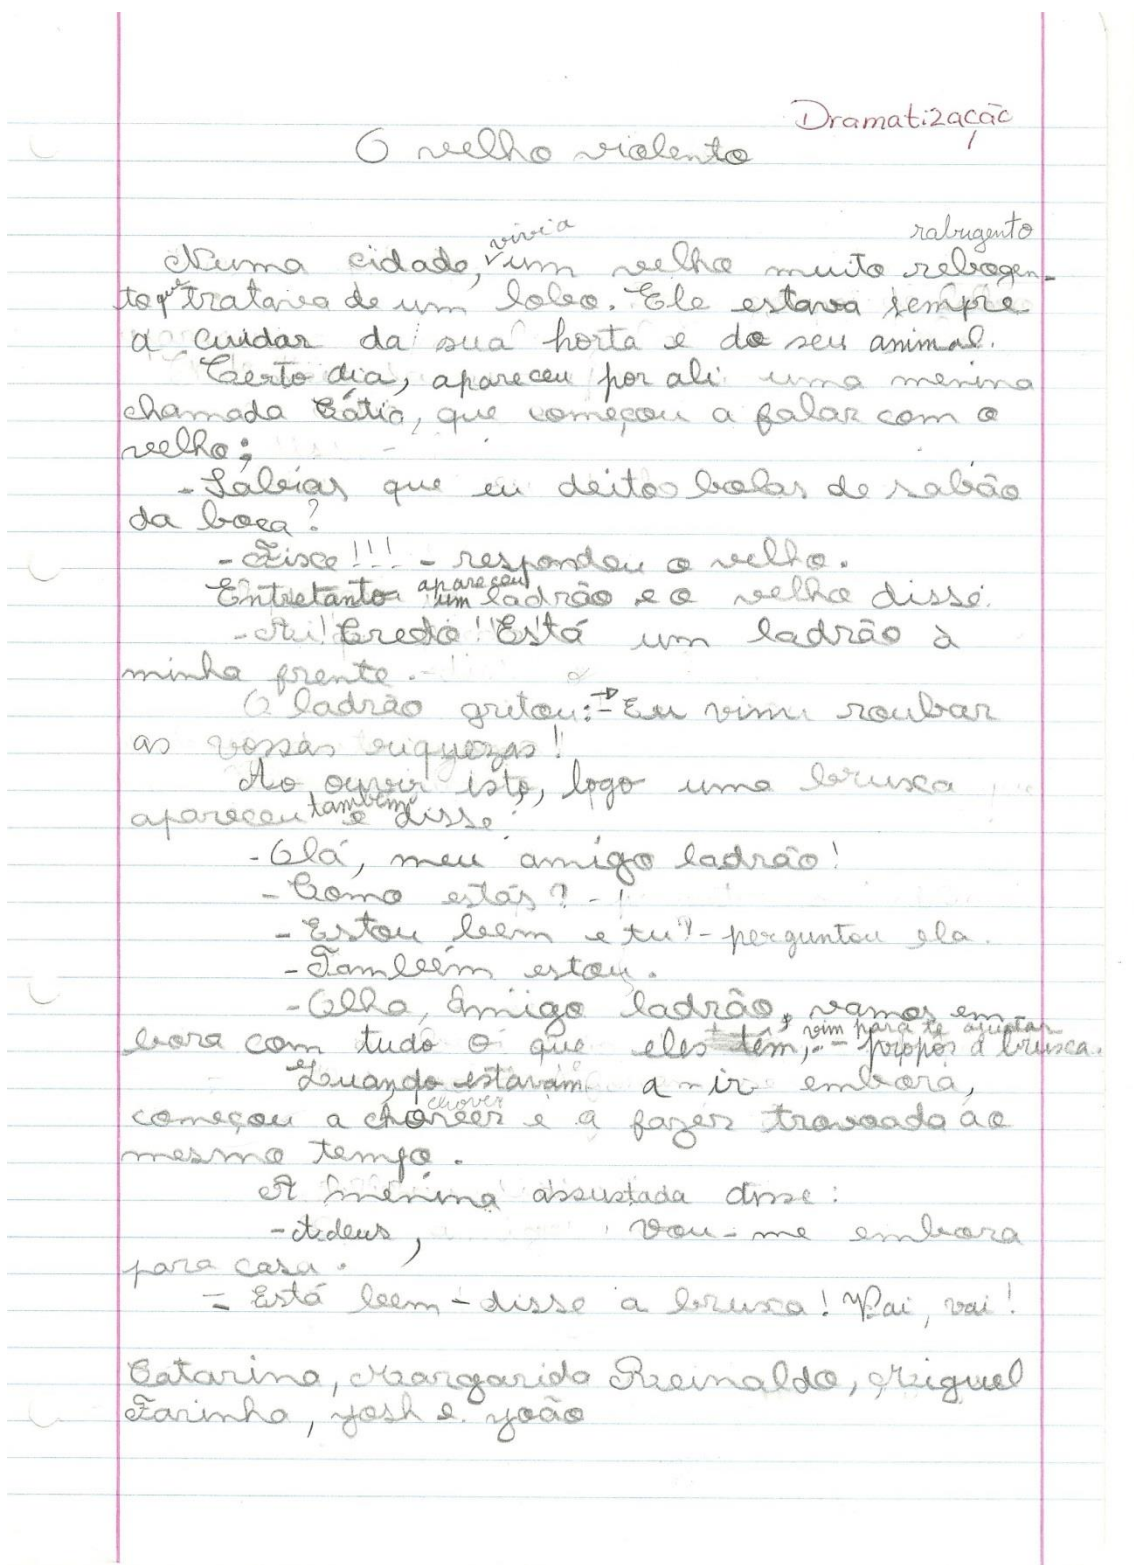 Dramatização
O velho violento
vivia rabugento
Numa cidade, um velho muito rebogen-
to que tratava de um lobo. Ele estava sempre
a cuidar da sua horta e do seu animal.
Certo dia, apareceu por ali uma menina
chamada Cátia, que começou a falar com o
velho:
- Sabias que eu deito bolas de sabão
da boca?
- Fisce!!! - respondeu o velho.
apareceu
Entretanto um ladrão e o velho disse:
- Ai! Credo!! Está um ladrão à
minha frente.
O ladrão gritou: - Eu vim roubar
as vossas riquezas!
Ao ouvir isto, logo uma bruxa
também
apareceu e disse:
- Olá, meu amigo ladrão!
- Como estás? -
- Estou bem e tu? - perguntou ela.
- Também estou.
- Olha, amigo ladrão, vamos em
vim para te ajudar
bora com tudo o que eles têm, - propôs a bruxa.
Quando estavam a ir embora,
chover
começou a chorver e a fazer trovoada ao
mesmo tempo.
A menina assustada disse:
- Adeus, vou-me embora
para casa.
- Está bem - disse a bruxa! Vai, vai!
Catarina, Margarida Reinaldo, Miguel
Farinha, Josh e João